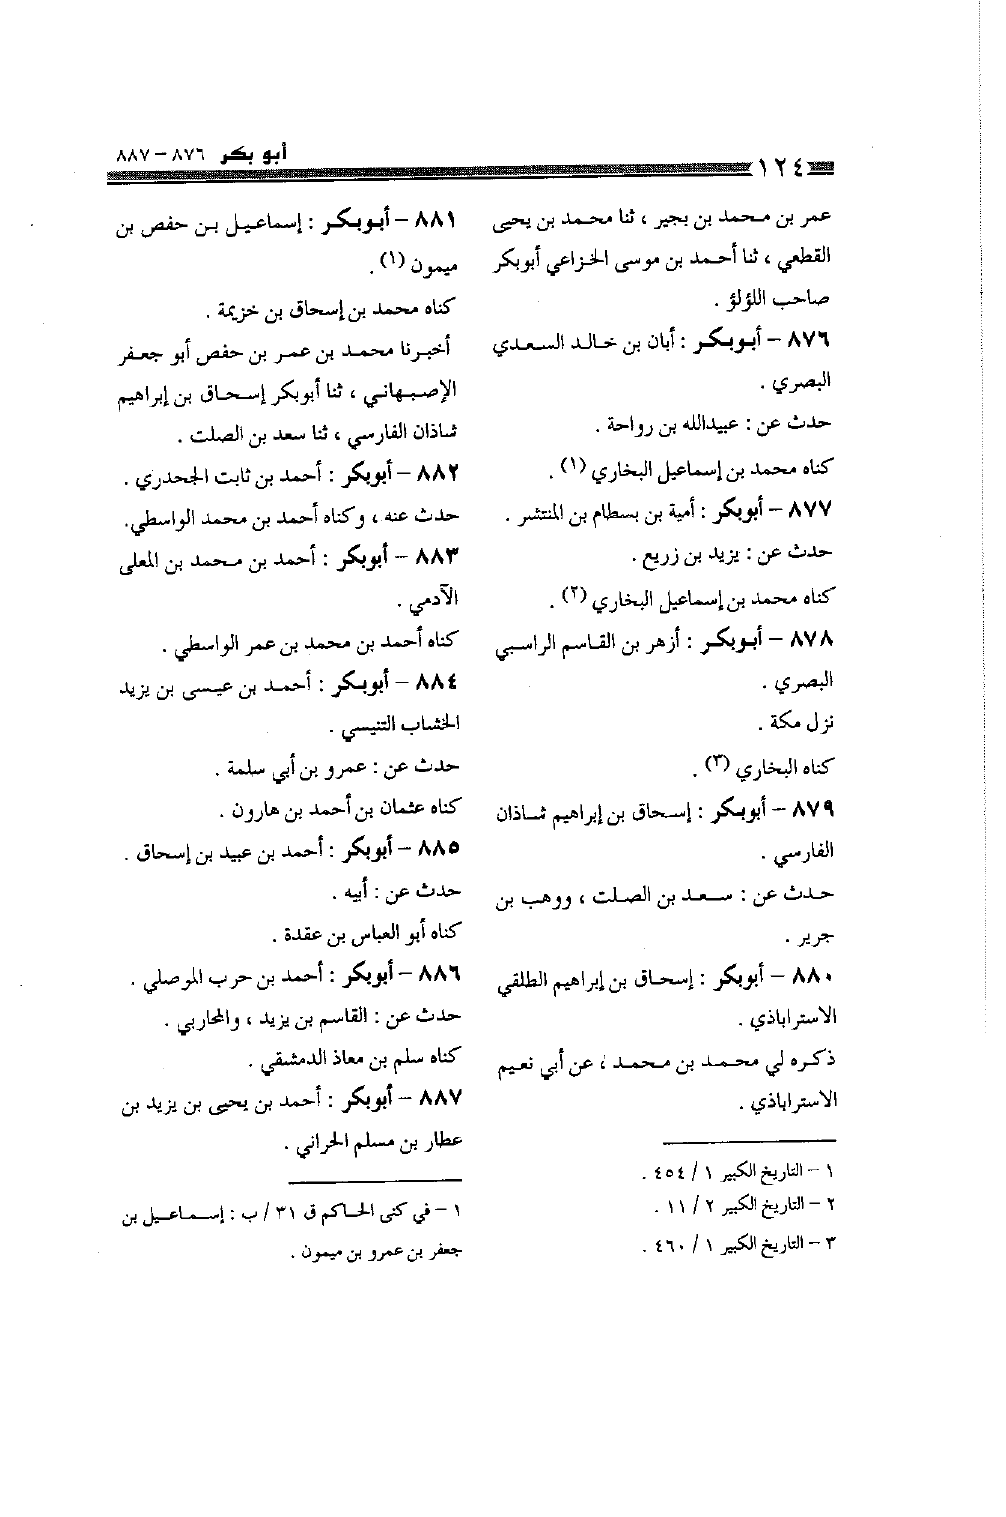 ١٢٤ أبو بكر ٨٧٦ – ٨٨٧
عمر بن محمد بن بجير ، ثنا محمد بن يحيى
القطعي ، ثنا أحمد بن موسى الخزاعي أبوبكر
صاحب اللؤلؤ .
٨٧٦ – أبوبكر : أبان بن خالد السعدي
البصري .
حدث عن : عبيدالله بن رواحة .
كناه محمد بن إسماعيل البخاري (١) .
٨٧٧ – أبوبكر : أمية بن بسطام بن المنتشر .
حدث عن : يزيد بن زريع .
كناه محمد بن إسماعيل البخاري (٢) .
٨٧٨ – أبوبكر : أزهر بن القاسم الراسبي
البصري .
نزل مكة .
كناه البخاري (٣) .
٨٧٩ – أبوبكر : إسحاق بن إبراهيم شاذان
الفارسي .
حدث عن : سعد بن الصلت ، ووهب بن
جرير .
٨٨٠ – أبوبكر : إسحاق بن إبراهيم الطلقي
الاستراباذي .
ذكره لي محمد بن محمد ، عن أبي نعيم
الاستراباذي .
١ – التاريخ الكبير ١ / ٤٥٤ .
٢ – التاريخ الكبير ٢ / ١١ .
٣ – التاريخ الكبير ١ / ٤٦٠ .
٨٨١ – أبوبكر : إسماعيل بن حفص بن
ميمون (١) .
كناه محمد بن إسحاق بن خزيمة .
أخبرنا محمد بن عمر بن حفص أبو جعفر
الإصبهاني ، ثنا أبوبكر إسحاق بن إبراهيم
شاذان الفارسي ، ثنا سعد بن الصلت .
٨٨٢ – أبوبكر : أحمد بن ثابت الجحدري .
حدث عنه ، وكناه أحمد بن محمد الواسطي.
٨٨٣ – أبوبكر : أحمد بن محمد بن المعلى
الآدمي .
كناه أحمد بن محمد بن عمر الواسطي .
٨٨٤ – أبوبكر : أحمد بن عيسى بن يزيد
الخشاب التنيسي .
حدث عن : عمرو بن أبي سلمة .
كناه عثمان بن أحمد بن هارون .
٨٨٥ – أبوبكر : أحمد بن عبيد بن إسحاق .
حدث عن : أبيه .
كناه أبو العباس بن عقدة .
٨٨٦ – أبوبكر : أحمد بن حرب الموصلي .
حدث عن : القاسم بن يزيد ، والمحاربي .
كناه سلم بن معاذ الدمشقي .
٨٨٧ – أبوبكر : أحمد بن يحيى بن يزيد بن
عطار بن مسلم الحراني .
١ – في كنى الحاكم ق ٣١ / ب : إسماعيل بن
جعفر بن عمرو بن ميمون .